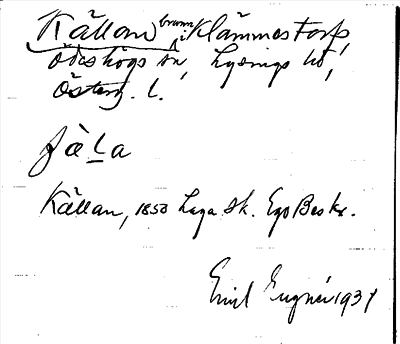 Källan brunn i Klämmestorp,
Ödeshögs sn, Lysings hd,
Österg. l.
Källan, 1850 Laga sk. Ego Beskr.
Emil Eugnér 1931